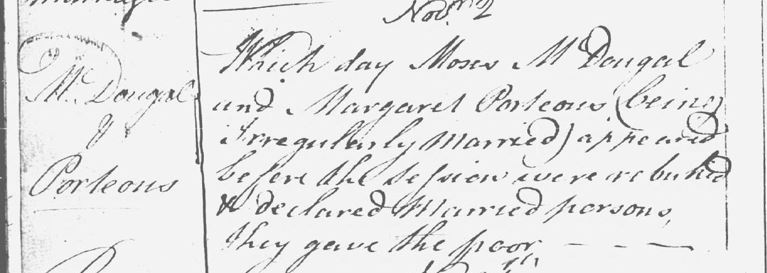 Novr. 2
McDougal
&
Porteous
Which day Moses McDougal
und Margaret Porteous (being
Irregularly Married) appeared
before the Session were rebuked
& declared Married persons,
they gave the poor